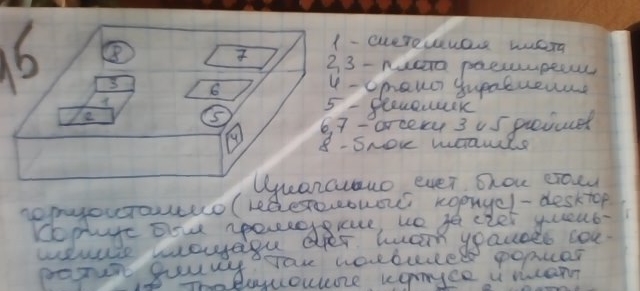 15
8
7
3
6
1
2
5
4
1 - системная плата
2,3 - плата расширения
4 - органы управления
5 - динамик
6,7 - отсеки 3 и 5 дюймов
8 - блок питания
Изначально сист. блок стоял
горизонтально (настольный корпус) - desktop.
Корпус был громоздкий, но за счёт умень-
шения площади сист. платы удалось сок-
ратить длину. Так появился формат
Традиционные корпуса и платы